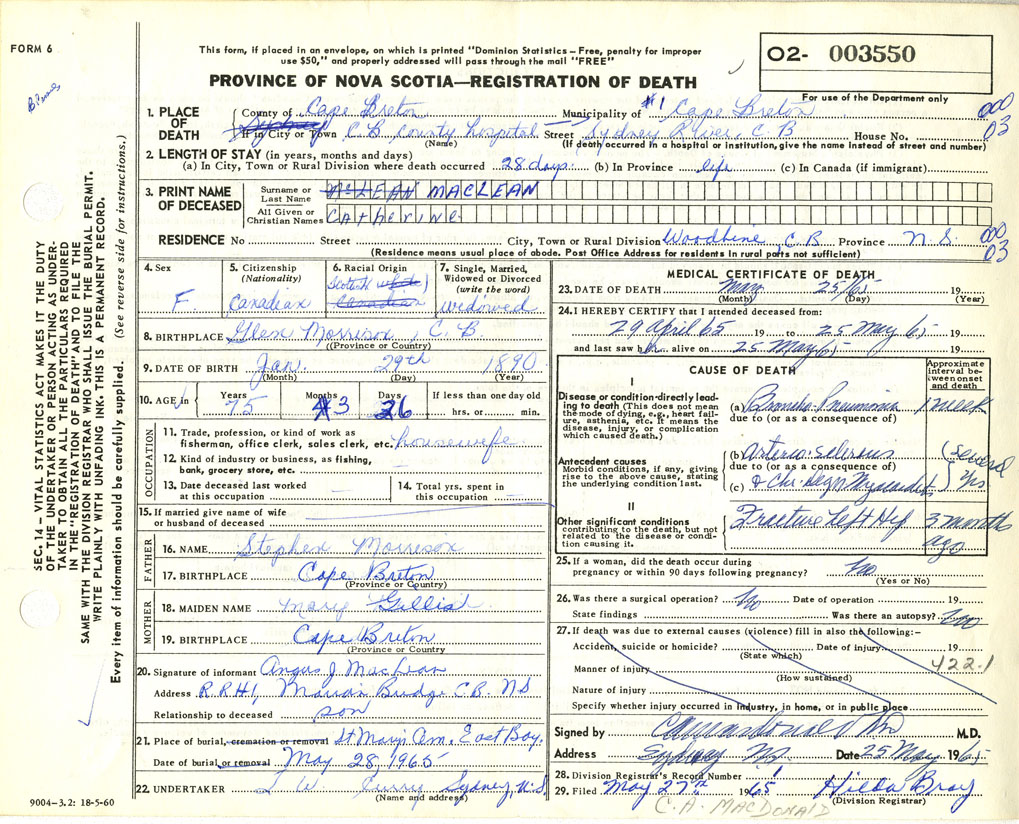 FORM 6
This form, if placed in an envelope, on which is printed "Dominion Statistics – Free, penalty for improper
use $50," and properly addressed will pass through the mail "FREE"
PROVINCE OF NOVA SCOTIA—REGISTRATION OF DEATH
O2- 003550
For use of the Department only
1. PLACE OF DEATH
County of Cape Breton Municipality of #1 Cape Breton 000
If in City or Town C.B. County Hospital Street Sydney River, C B House No. 03
(Name) (If death occurred in a hospital or institution, give the name instead of street and number)
2. LENGTH OF STAY (in years, months and days)
(a) In City, Town or Rural Division where death occurred 28 days (b) In Province life (c) In Canada (if immigrant)
3. PRINT NAME OF DECEASED
Surname or Last Name McLEAN MACLEAN
All Given or Christian Names CATHERINE
RESIDENCE No Street City, Town or Rural Division Woodbine, C B Province N.S. 000 03
(Residence means usual place of abode. Post Office Address for residents in rural parts not sufficient)
4. Sex F
5. Citizenship (Nationality) Canadian
6. Racial Origin Scotish (white) Canadian
7. Single, Married, Widowed or Divorced (write the word) widowed
8. BIRTHPLACE Glen Morrison, C. B
(Province or Country)
9. DATE OF BIRTH Jan. 29th 1890
(Month) (Day) (Year)
10. AGE Years 75 Months 3 Days 26 If less than one day old hrs. or min.
OCCUPATION
11. Trade, profession, or kind of work as fisherman, office clerk, sales clerk, etc. housewife
12. Kind of industry or business, as fishing, bank, grocery store, etc.
13. Date deceased last worked at this occupation
14. Total yrs. spent in this occupation
15. If married give name of wife or husband of deceased
FATHER
16. NAME Stephen Morrison
17. BIRTHPLACE Cape Breton
(Province or Country)
MOTHER
18. MAIDEN NAME Mary Gillis
19. BIRTHPLACE Cape Breton
(Province or Country)
20. Signature of informant Angus J. MacLean
Address R.R#1, Marion Bridge C.B. NS
Relationship to deceased son
21. Place of burial, cremation or removal St Mary's Cem, East Bay.
Date of burial or removal May 28, 1965
22. UNDERTAKER Curry Sydney, N.S
(Name and address)
MEDICAL CERTIFICATE OF DEATH
23. DATE OF DEATH May 25/65
(Month) (Day) (Year)
24. I HEREBY CERTIFY that I attended deceased from:
29 April 65 19 to 25 May 65 19
and last saw her alive on 25 May 65 19
CAUSE OF DEATH
Approximate interval between onset and death
I
Disease or condition directly leading to death (This does not mean the mode of dying, e.g., heart failure, asthenia, etc. It means the disease, injury, or complication which caused death.)
(a) Broncho Pneumonia 1 week
due to (or as a consequence of)
Antecedent causes
Morbid conditions, if any, giving rise to the above cause, stating the underlying condition last.
(b) Arterio-Sclerosis (several
due to (or as a consequence of)
(c) & Chr. Degn Myocarditis yrs
II
Other significant conditions contributing to the death, but not related to the disease or condition causing it.
Fracture Left Hip 3 months ago
25. If a woman, did the death occur during pregnancy or within 90 days following pregnancy? No
(Yes or No)
26. Was there a surgical operation? No Date of operation 19
State findings Was there an autopsy? No
27. If death was due to external causes (violence) fill in also the following:–
Accident, suicide or homicide? Date of injury 19
(State which) 422.1
Manner of injury
(How sustained)
Nature of injury
Specify whether injury occurred in industry, in home, or in public place
Signed by CA MacDonald M.D.
Address Sydney NS Date 25 May 1965
28. Division Registrar's Record Number 1
29. Filed May 27th 1965 Hilda Bray
(Division Registrar)
C. A. MACDONALD
9004–3.2: 18-5-60
SEC. 14 – VITAL STATISTICS ACT MAKES IT THE DUTY
OF THE UNDERTAKER OR PERSON ACTING AS UNDER-
TAKER TO OBTAIN ALL THE PARTICULARS REQUIRED
IN THE "REGISTRATION OF DEATH" AND TO FILE THE
SAME WITH THE DIVISION REGISTRAR WHO SHALL ISSUE THE BURIAL PERMIT.
WRITE PLAINLY WITH UNFADING INK. THIS IS A PERMANENT RECORD.
Every item of information should be carefully supplied. (See reverse side for instructions.)